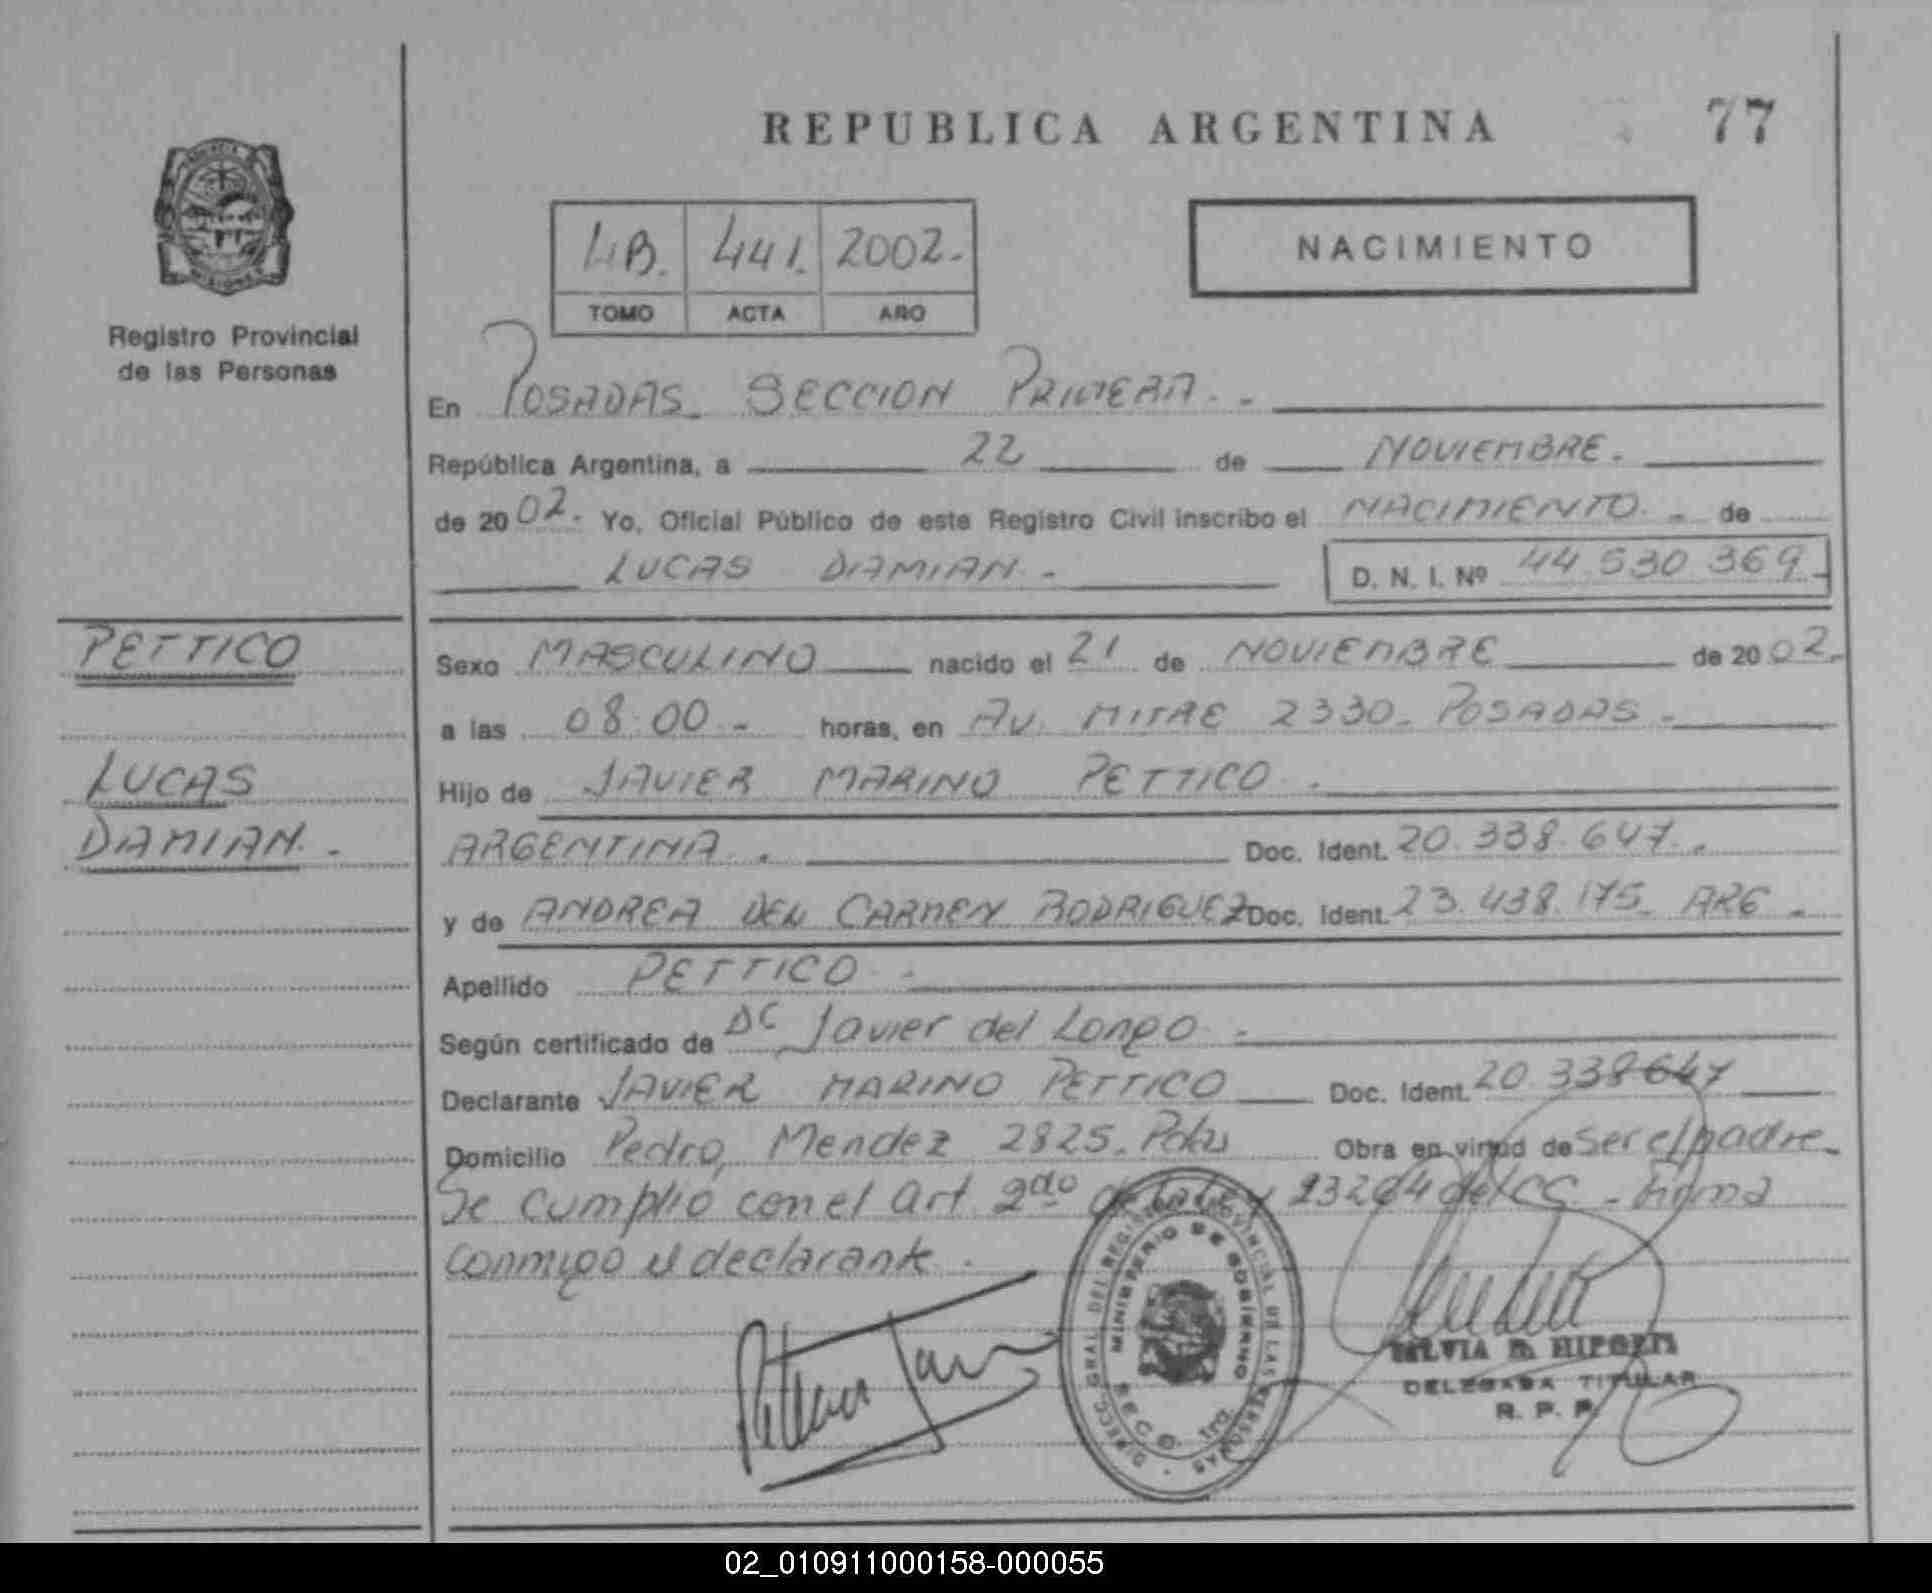 REPUBLICA ARGENTINA 77
4B. 441. 2002.
TOMO ACTA AÑO
NACIMIENTO
Registro Provincial
de las Personas
En POSADAS. SECCION PRIMERA. -
República Argentina, a 22 de NOVIEMBRE.
de 2002. Yo, Oficial Público de este Registro Civil inscribo el NACIMIENTO. - de
LUCAS DAMIAN. - D. N. I. Nº 44.530 369.-
PETTICO
LUCAS
DAMIAN. -
Sexo MASCULINO nacido el 21 de NOVIEMBRE de 2002.
a las 08:00 - horas, en AV. MITRE 2330. POSADAS -
Hijo de JAVIER MARINO PETTICO. -
ARGENTINA. Doc. Ident. 20.338.647. -
y de ANDREA DEL CARMEN RODRIGUEZ Doc. Ident. 23.438.175. ARG -
Apellido PETTICO. -
Según certificado de Javier del Longo. -
Declarante JAVIER MARINO PETTICO Doc. Ident. 20.338647
Domicilio Pedro Mendez 2825. Pdas Obra en virtud de ser el padre.
Se cumplio con el Art. 2do de la Ley 23264 del CC - Firma
conmigo el declarante.
DIRECC. GRAL. DEL REGISTRO PROVINCIAL DE LAS PERSONAS
MINISTERIO DE GOBIERNO
SECC. 1ra.
SILVIA
DELEGADA TITULAR
R. P. P.
02_010911000158-000055